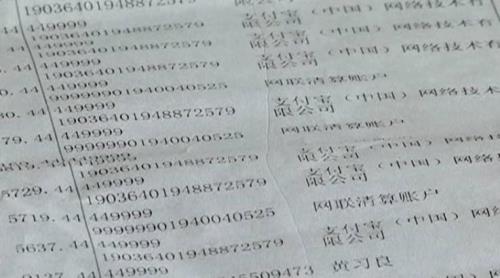 19036401948872579 限公司
44 449999 支付宝（中国）网络技术有
449999
19036401948872579 限公司
44 449999 支付宝（中国）网络技术有
19036401948872579 限公司
. 44 449999 网联清算账户
99999901940040525
0. 44 449999 支付宝（中国）网络技术
19036401948872579 限公司
79. 44 449999 网联清算账户
99999901940040525
支付宝（中国）网络
19036401948872579 限公司
5729. 44 449999 支付宝（中国）网络
19036401948872579 限公司
5719. 44 449999 网联清算账户
99999901940040525
5637. 44 449999 支付宝（中国）网
19036401948872579 限公司
44 449999 黄习良
5509473